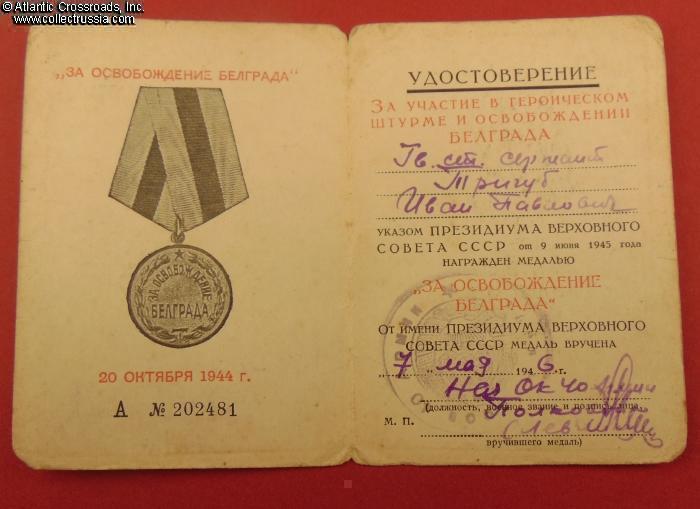 © Atlantic Crossroads, Inc.
www.collectrussia.com
„ЗА ОСВОБОЖДЕНИЕ БЕЛГРАДА“
ЗА ОСВОБОЖДЕНИЕ
БЕЛГРАДА
20 ОКТЯБРЯ 1944 г.
А № 202481
УДОСТОВЕРЕНИЕ
ЗА УЧАСТИЕ В ГЕРОИЧЕСКОМ
ШТУРМЕ И ОСВОБОЖДЕНИИ
БЕЛГРАДА
Гв. ст. сержант
Тригуб
Иван Павлович
УКАЗОМ ПРЕЗИДИУМА ВЕРХОВНОГО
СОВЕТА СССР от 9 июня 1945 года
НАГРАЖДЕН МЕДАЛЬЮ
„ЗА ОСВОБОЖДЕНИЕ
БЕЛГРАДА“
ОТ ИМЕНИ ПРЕЗИДИУМА ВЕРХОВНОГО
СОВЕТА СССР МЕДАЛЬ ВРУЧЕНА
„7“ мая 1946 г.
Нач
(должность, военное звание и подпись лица,
М. П.
вручившего медаль)